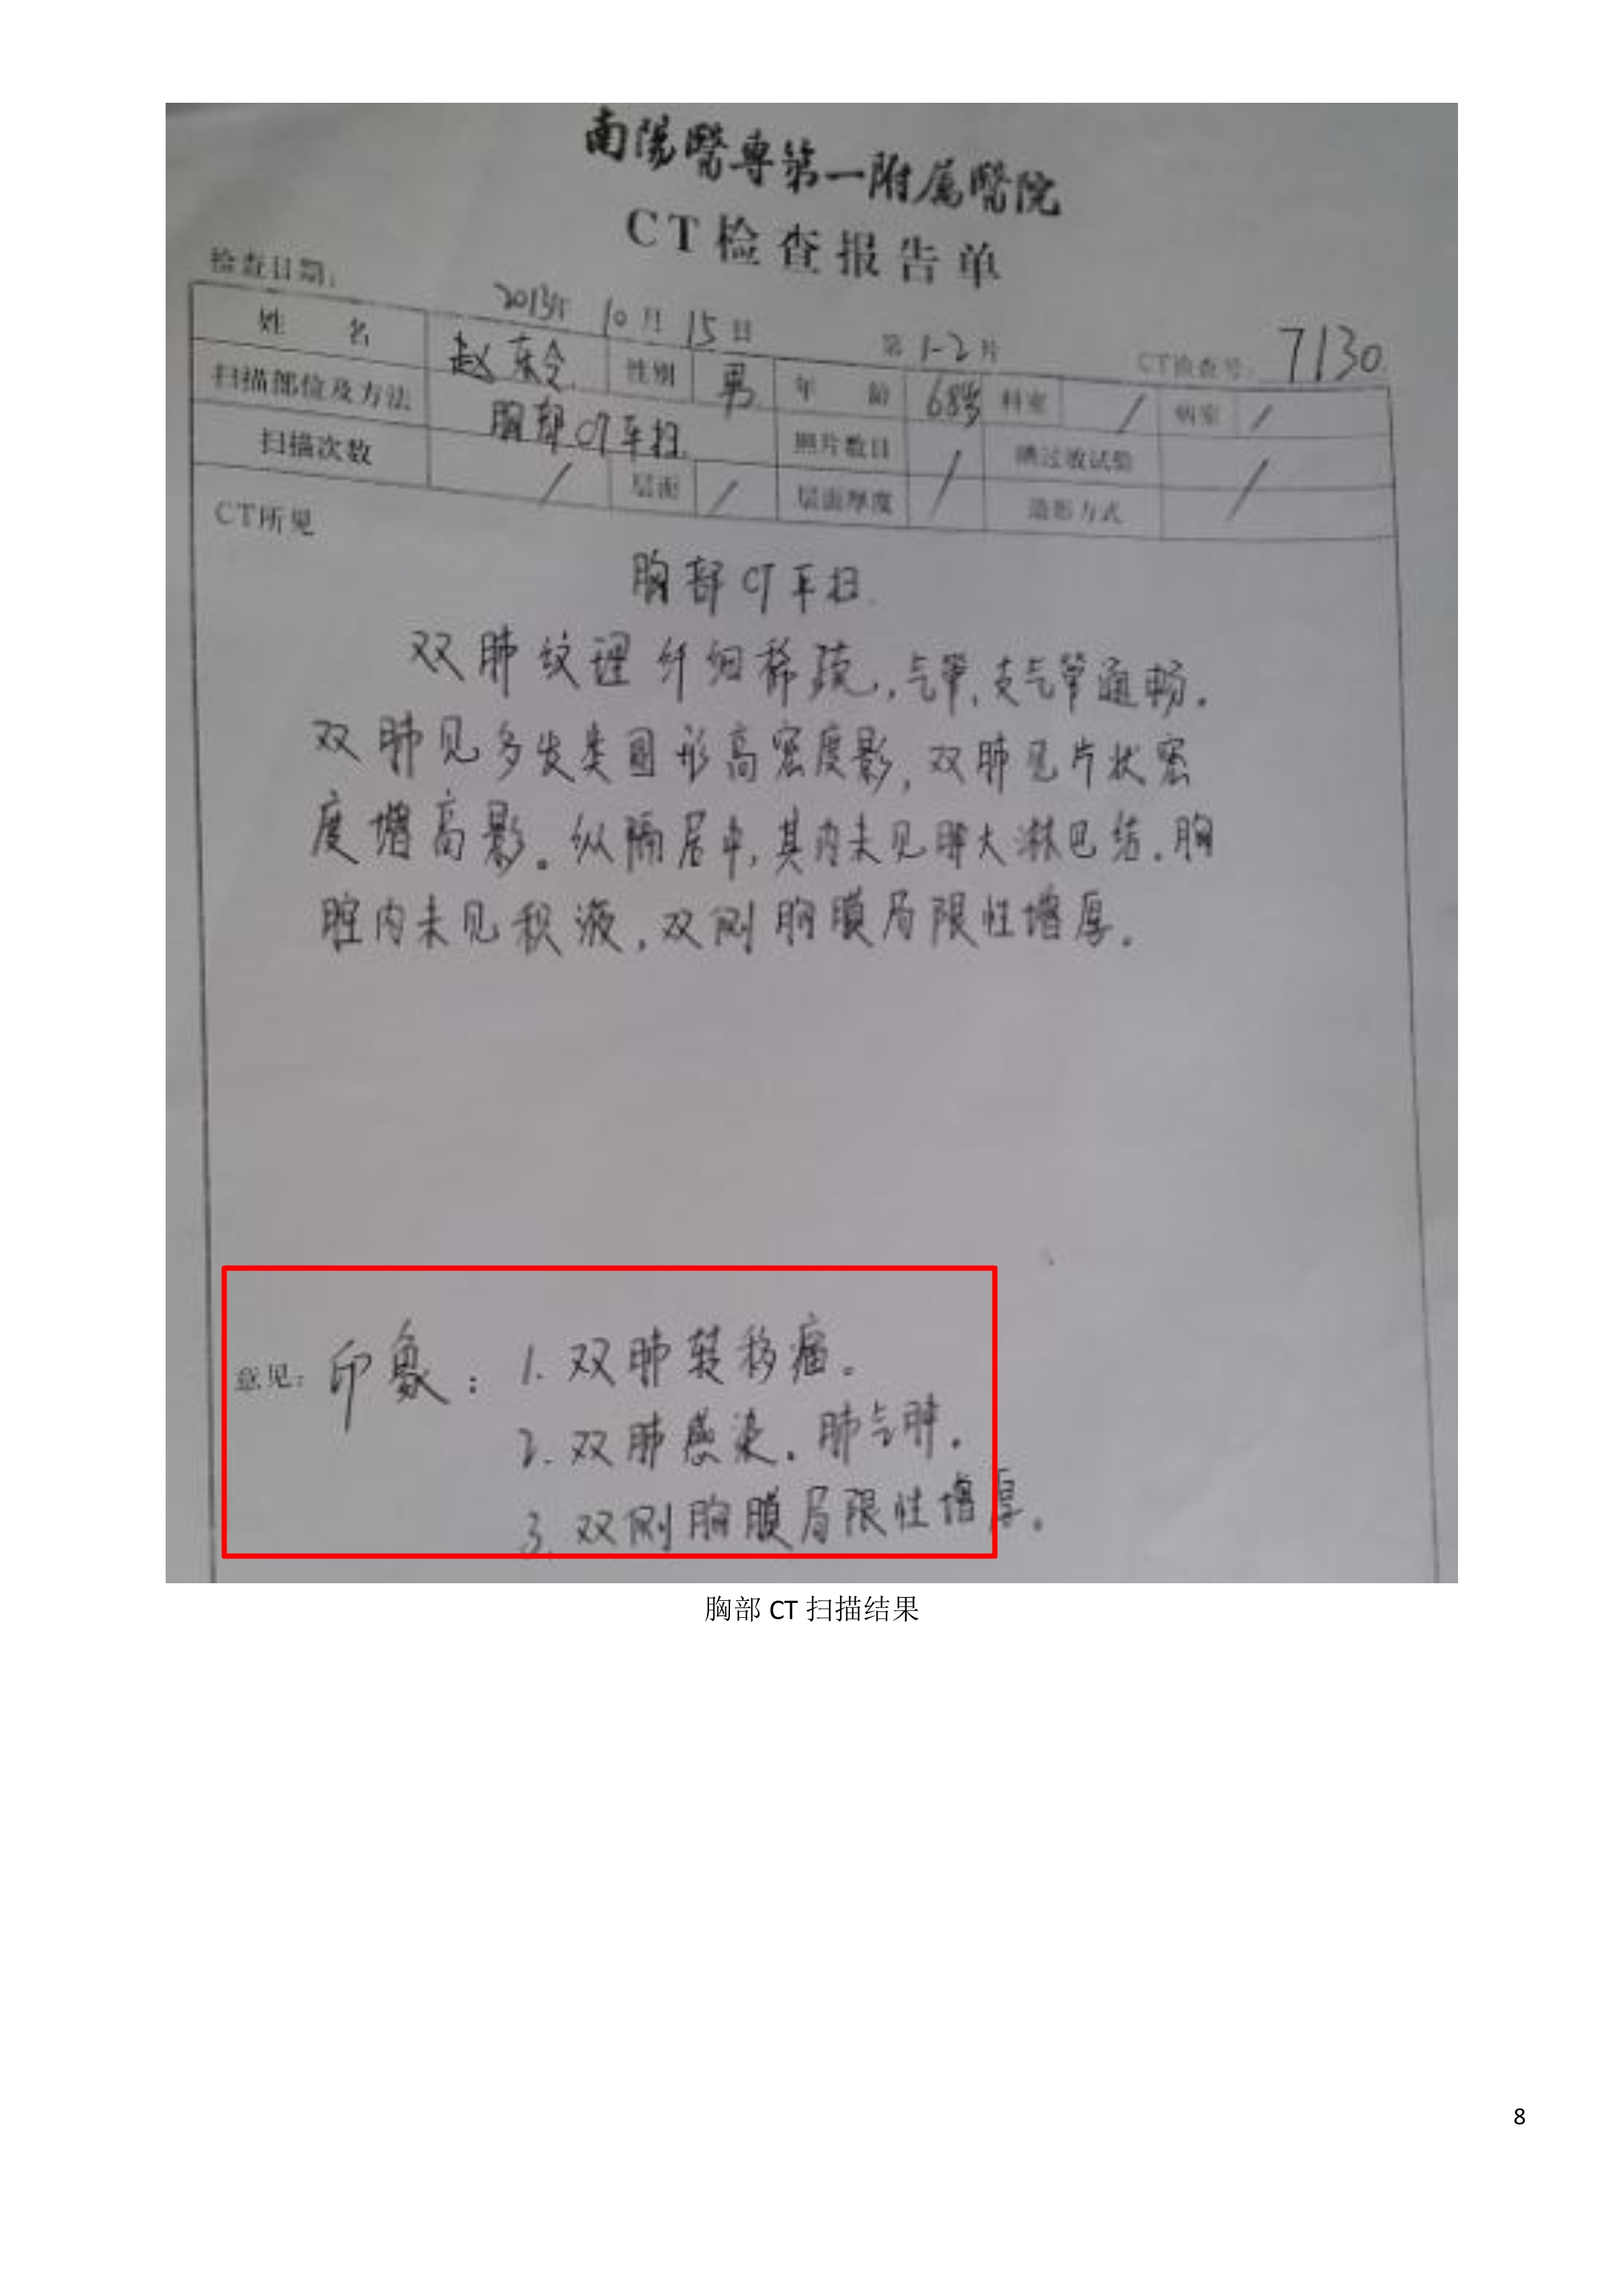 南陽醫專第一附属醫院
CT检查报告单
检查日期: 2013年 10月 15日 第 1-2 片 CT检查号: 7130
姓 名 赵东令 性别 男 年 龄 68岁 科室 / 病室 /
扫描部位及方法 胸部CT平扫 照片数目 / 碘过敏试验 /
扫描次数 / 层面 / 层面厚度 / 造影方式 /
CT所见
胸部CT平扫.
双肺纹理纤细稀疏,气管,支气管通畅.
双肺见多发类圆形高密度影,双肺见片状密
度增高影。纵隔居中,其内未见肿大淋巴结.胸
腔内未见积液,双侧胸膜局限性增厚.
意见: 印象: 1. 双肺转移瘤。
2. 双肺感染. 肺气肿.
3. 双侧胸膜局限性增厚.
胸部 CT 扫描结果
8